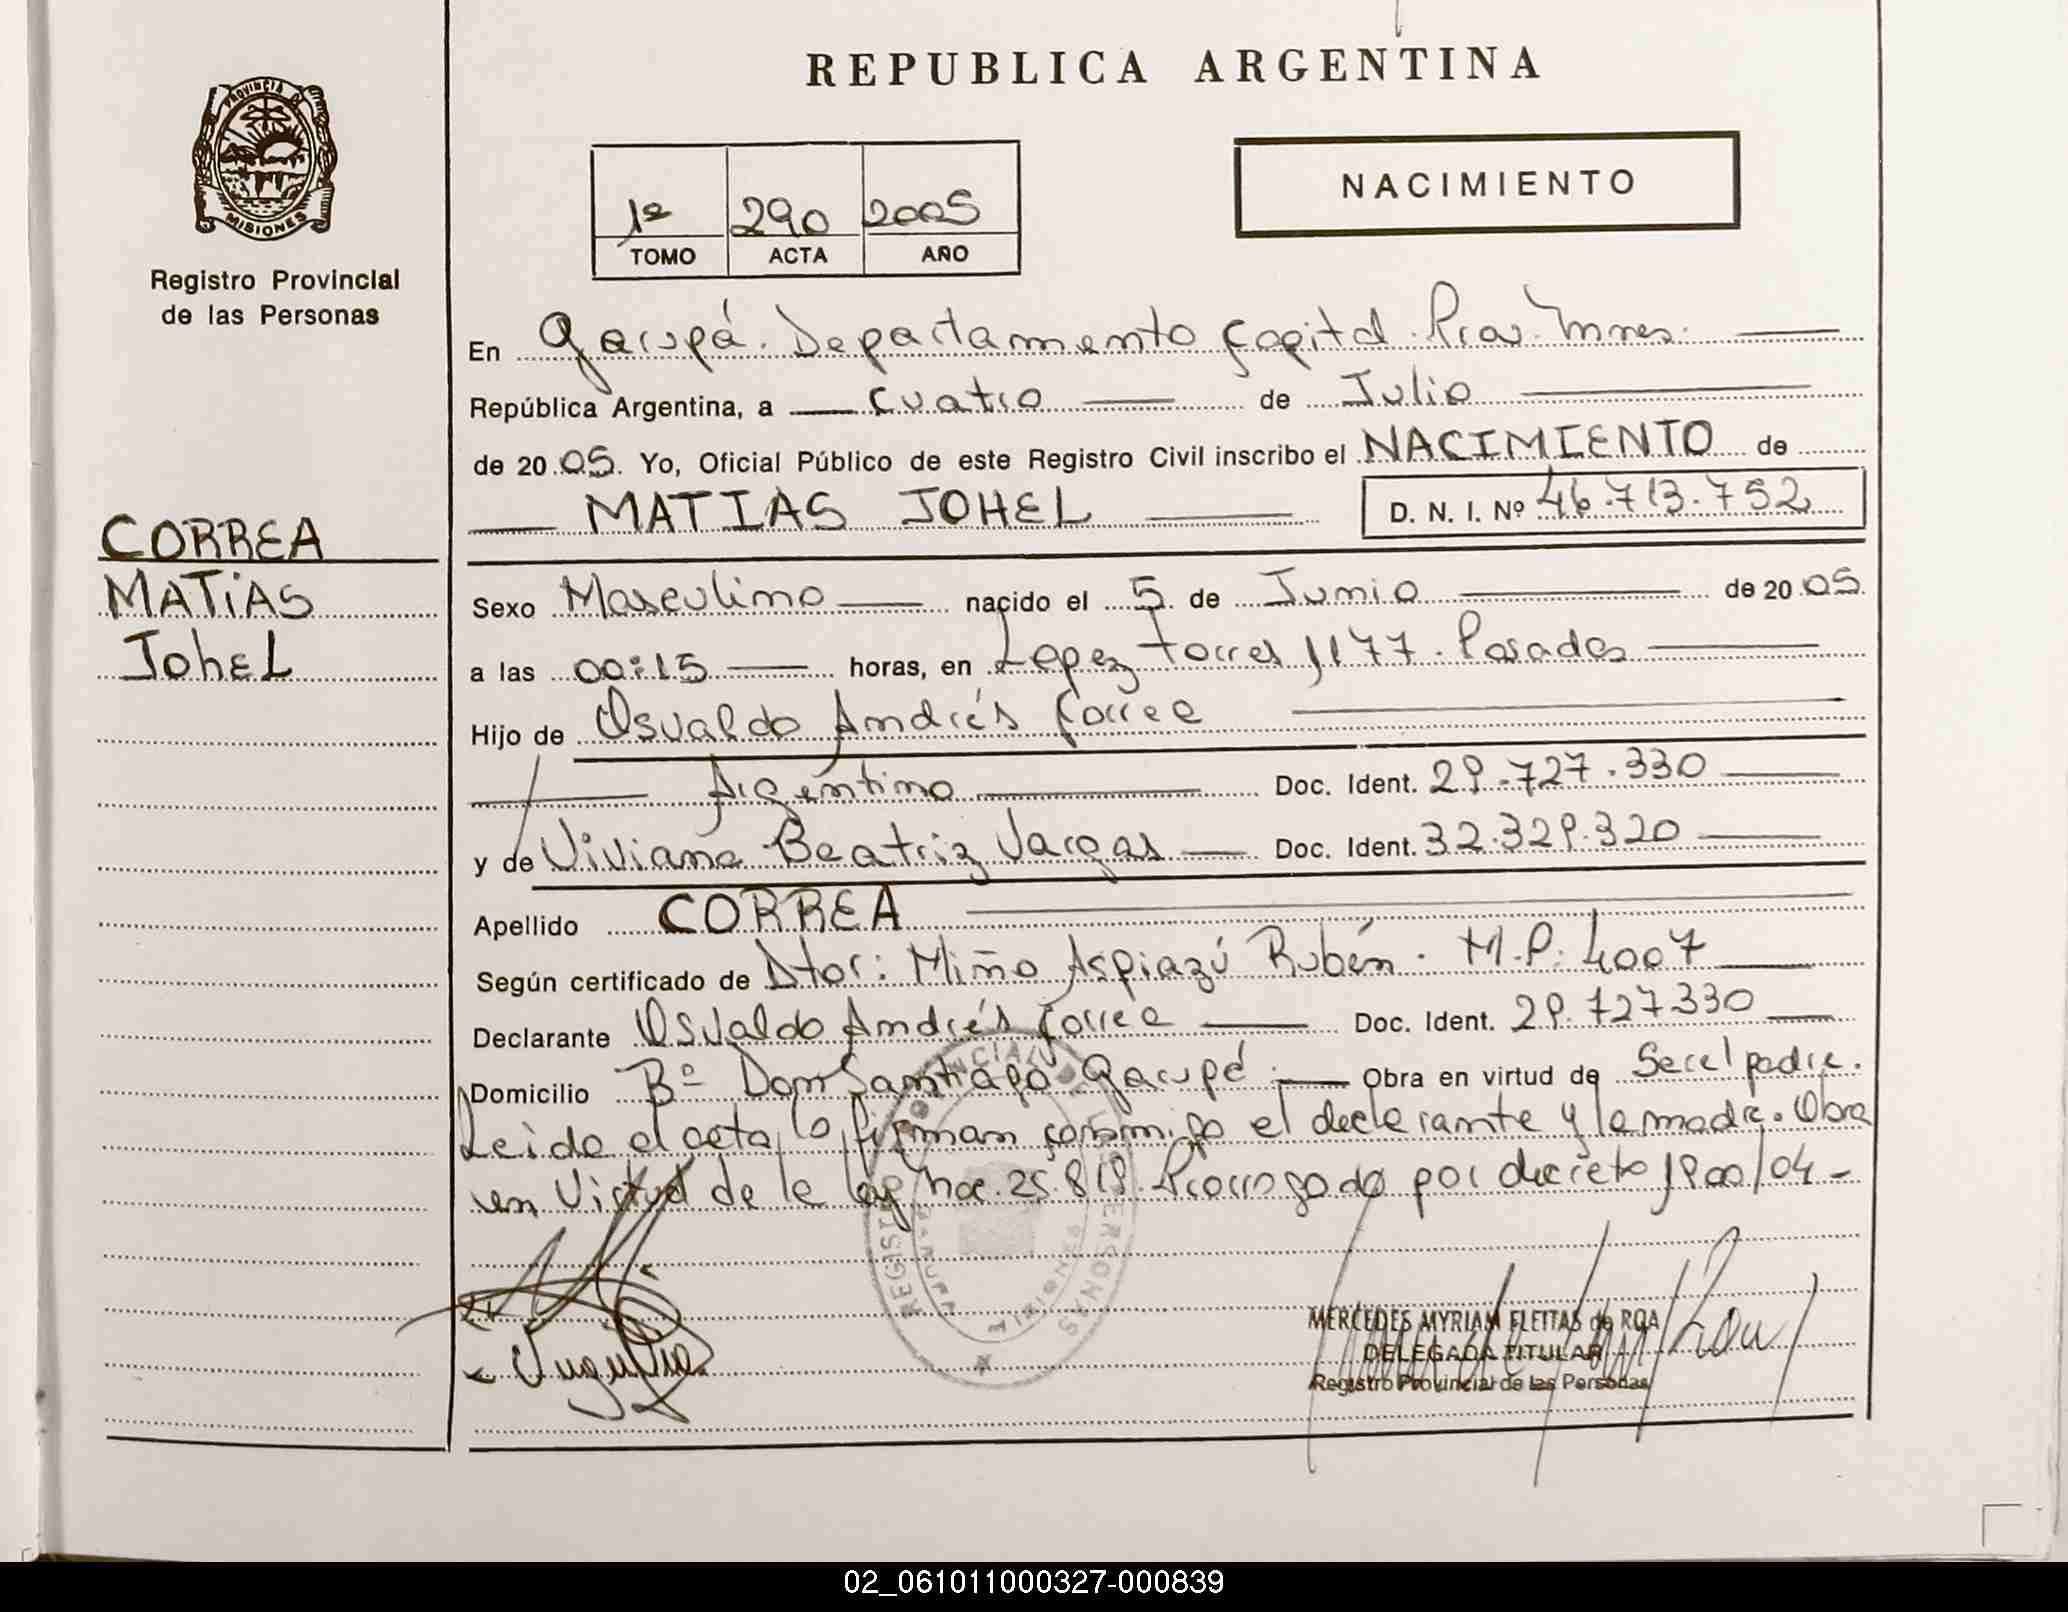 REPUBLICA ARGENTINA
PROVINCIA DE
MISIONES
Registro Provincial
de las Personas
NACIMIENTO
1º 290 2005
TOMO ACTA AÑO
En Garupá. Departamento Capital. Prov. Mnes.
República Argentina, a cuatro de Julio
de 2005. Yo, Oficial Público de este Registro Civil inscribo el NACIMIENTO de
MATIAS JOHEL D. N. I. Nº 46.713.752
CORREA
MATiAS
JohEL
Sexo Masculino nacido el 5 de Junio de 2005.
a las 00:15 horas, en Lopez Torres 1177. Posadas
Hijo de Osvaldo Andrés Correa
Argentino Doc. Ident. 29.727.330
y de Viviana Beatriz Vargas Doc. Ident. 32.329.320
Apellido CORREA
Según certificado de Dtor: Miño Aspiazú Rubén. M.P. 4007
Declarante Osvaldo Andrés Correa Doc. Ident. 29.727.330
Domicilio Bº Don Santiago Garupá. Obra en virtud de Ser el padre.
Leida el acta, la firman conmigo el declarante y la madre. Obra
en Virtud de la ley 25.819. Prorrogado por decreto 1900/04-
REGISTRO PROVINCIAL DE LAS PERSONAS
GARUPA
MISIONES
MERCEDES MYRIAM FLEITAS de ROA
DELEGADA TITULAR
Registro Provincial de las Personas
02_061011000327-000839